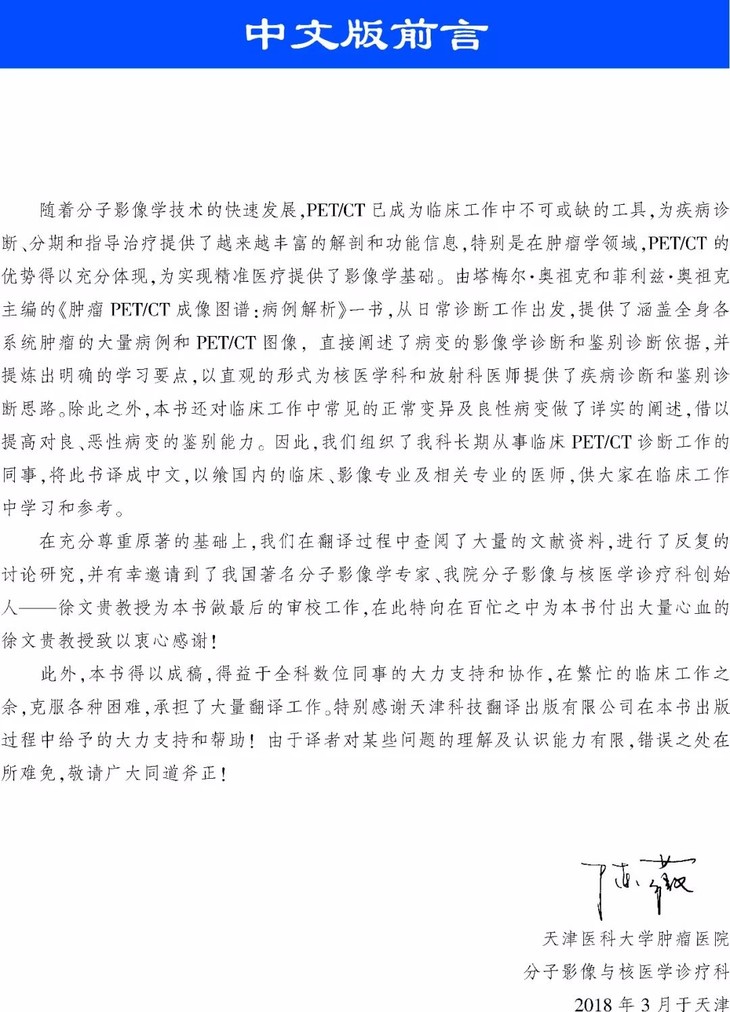 中文版前言
随着分子影像学技术的快速发展,PET/CT 已成为临床工作中不可或缺的工具,为疾病诊
断、分期和指导治疗提供了越来越丰富的解剖和功能信息,特别是在肿瘤学领域,PET/CT 的
优势得以充分体现,为实现精准医疗提供了影像学基础。由塔梅尔·奥祖克和菲利兹·奥祖克
主编的《肿瘤 PET/CT 成像图谱:病例解析》一书,从日常诊断工作出发,提供了涵盖全身各
系统肿瘤的大量病例和 PET/CT 图像，直接阐述了病变的影像学诊断和鉴别诊断依据,并
提炼出明确的学习要点,以直观的形式为核医学科和放射科医师提供了疾病诊断和鉴别诊
断思路。除此之外,本书还对临床工作中常见的正常变异及良性病变做了详实的阐述,借以
提高对良、恶性病变的鉴别能力。因此,我们组织了我科长期从事临床 PET/CT 诊断工作的
同事,将此书译成中文,以飨国内的临床、影像专业及相关专业的医师,供大家在临床工作
中学习和参考。
在充分尊重原著的基础上,我们在翻译过程中查阅了大量的文献资料,进行了反复的
讨论研究,并有幸邀请到了我国著名分子影像学专家、我院分子影像与核医学诊疗科创始
人——徐文贵教授为本书做最后的审校工作,在此特向在百忙之中为本书付出大量心血的
徐文贵教授致以衷心感谢!
此外,本书得以成稿,得益于全科数位同事的大力支持和协作,在繁忙的临床工作之
余,克服各种困难,承担了大量翻译工作。特别感谢天津科技翻译出版有限公司在本书出版
过程中给予的大力支持和帮助! 由于译者对某些问题的理解及认识能力有限,错误之处在
所难免,敬请广大同道斧正!
天津医科大学肿瘤医院
分子影像与核医学诊疗科
2018 年 3 月于天津